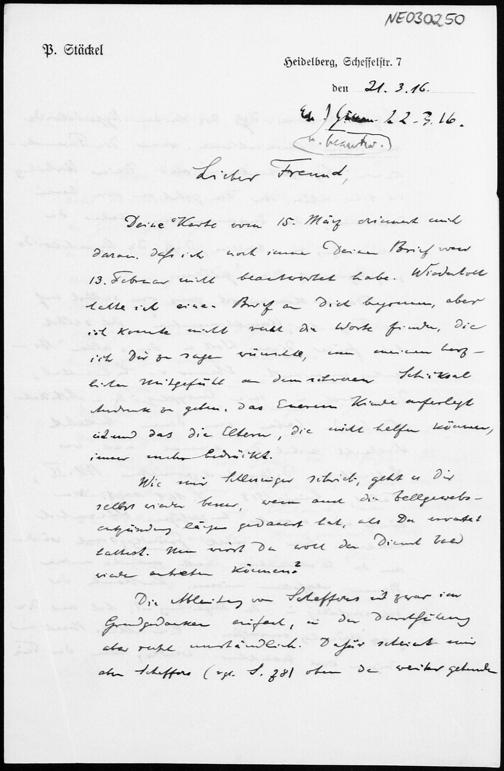 NE030250
P. Stäckel
Heidelberg, Scheffelstr. 7
den 21.3.16.
22.3.16.
u. beantw.
Lieber Freund,
Deine Karte vom 15. März erinnert mich
daran, daß ich noch immer Deinen Brief vom
13. Februar nicht beantwortet habe. Wiederholt
hatte ich einen Brief an Dich begonnen, aber
ich konnte nicht recht die Worte finden, die
ich Dir zu sagen wünschte, um meinem herz-
lichen Mitgefühl an dem schweren Schicksal
Ausdruck zu geben, das Euerem Kinde auferlegt
ist und das die Eltern, die nicht helfen können,
immer mehr bedrückt.
Wie mir Schlesinger schrieb, geht es Dir
selbst wieder besser, wenn auch die Zellgewebs-
entzündung länger gedauert hat, als Du erwartet
hattest. Nun wirst Du wohl den Dienst bald
wieder antreten können?
Die Ableitung von Scheffers ist zwar im
Grundgedanken einfach, in der Durchführung
aber recht umständlich. Dafür scheint mir
aber Scheffers (vgl. S. 78) oben der weiter gehende